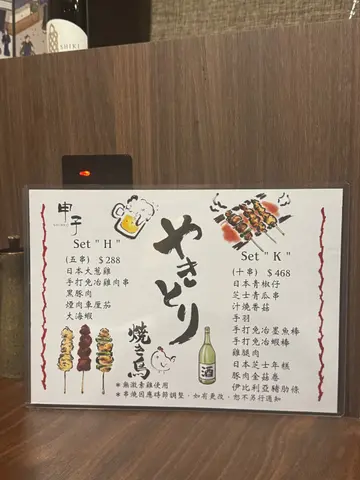 SHIKI
甲子
Set " H "
(五串) $288
日本大葱雞
手打免治雞肉串
黑豚肉
煙肉車厘茄
大海蝦
やきとり
焼き鳥
Set " K "
(十串) $468
日本青椒仔
芝士青瓜串
汁燒香菇
手羽
手打免治墨魚棒
手打免治蝦棒
雞腿肉
日本芝士年糕
豚肉金菇卷
伊比利亞豬肋條
酒
*無激素雞使用
*串燒因應時節調整,如有更改,恕不另行通知